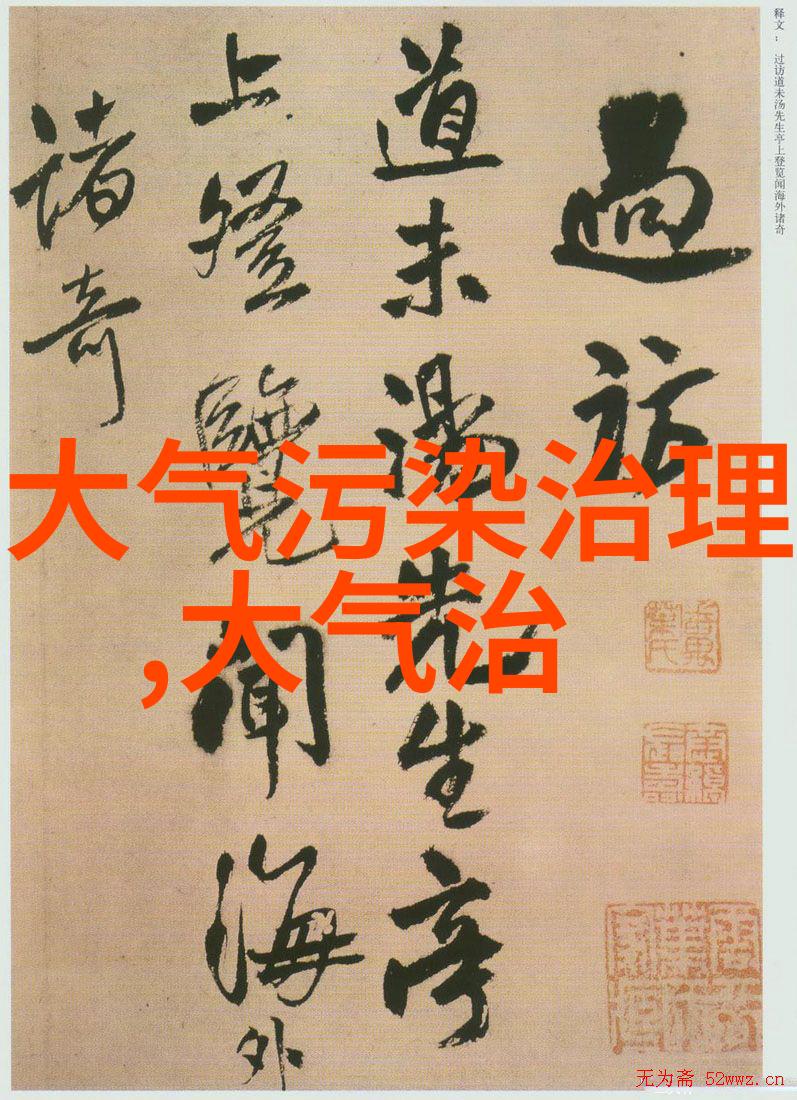 释文： 过访道未汤先生亭上登览闻海外诸奇
過訪
道未湯先生亭
上登覽聞海外
諸奇
大气污染治理
,大气治
无为斋 52wwz.cn